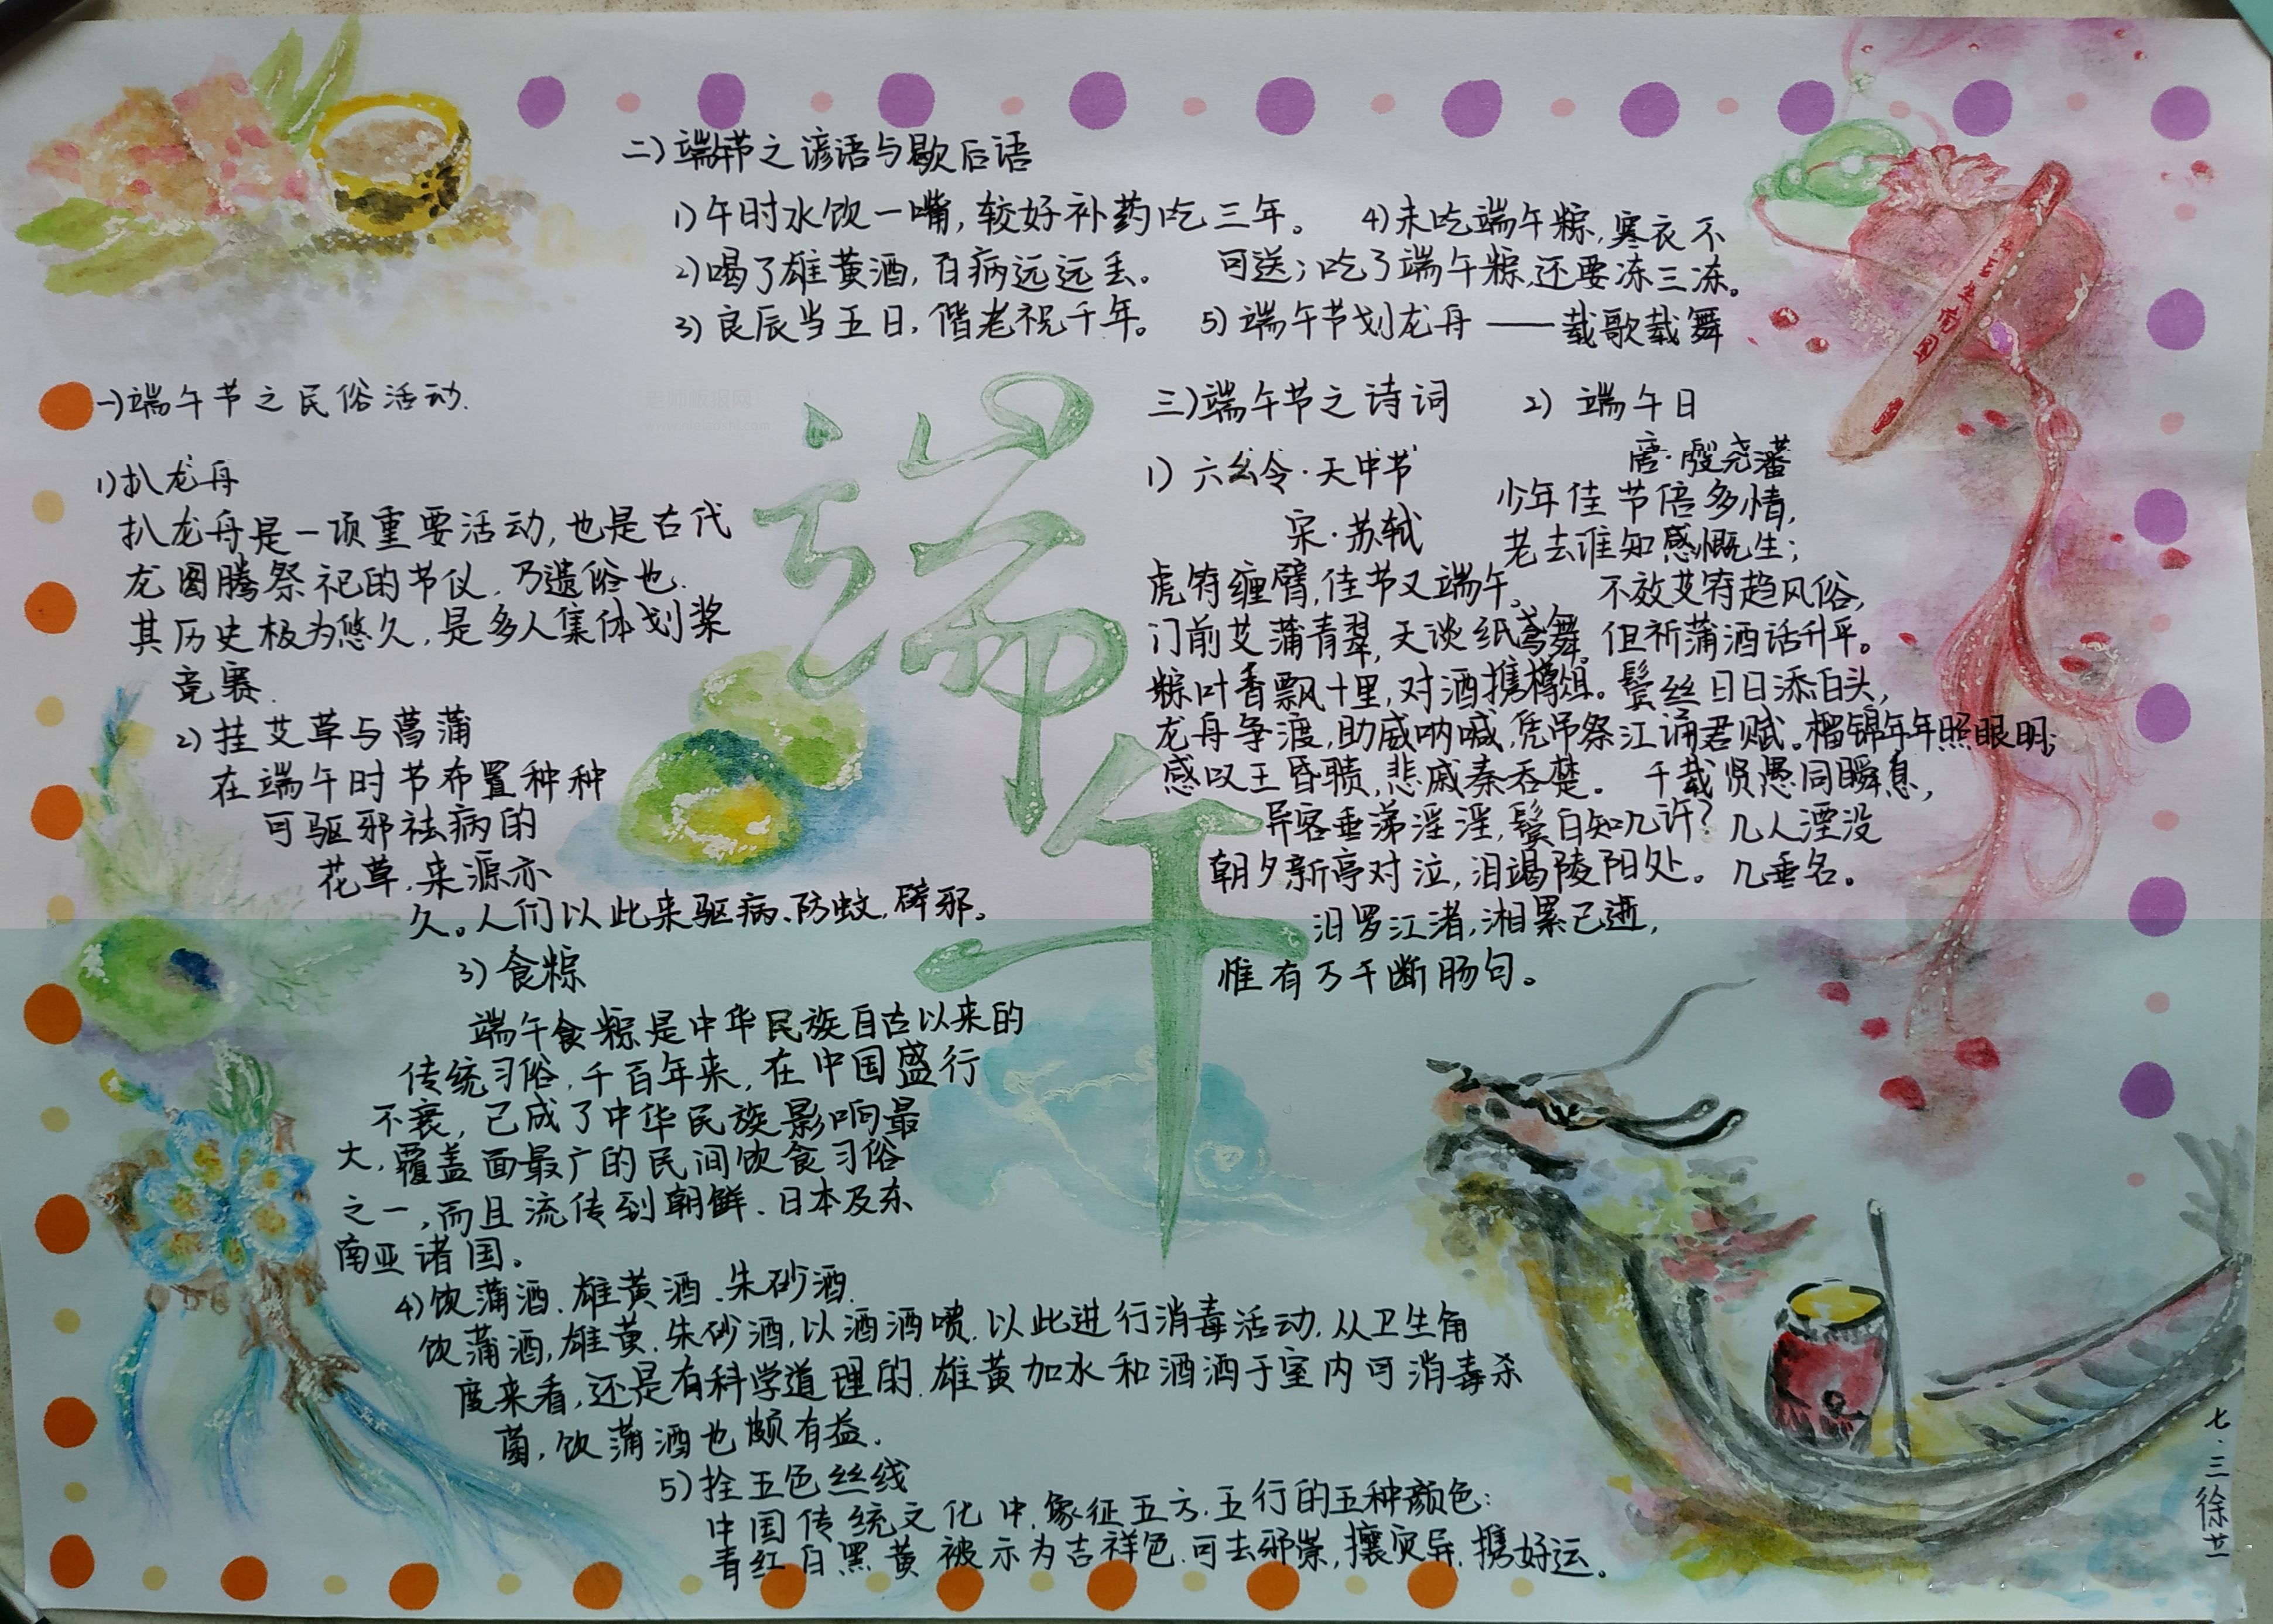 端午
一)端午节之民俗活动.
1)扒龙舟
扒龙舟是一项重要活动,也是古代
龙图腾祭祀的节仪.乃遗俗也.
其历史极为悠久,是多人集体划桨
竞赛.
2)挂艾草与菖蒲
在端午时节布置种种
可驱邪祛病的
花草,来源亦
久。人们以此来驱病、防蚊,辟邪。
3)食粽
端午食粽是中华民族自古以来的
传统习俗,千百年来,在中国盛行
不衰,已成了中华民族影响最
大,覆盖面最广的民间饮食习俗
之一,而且流传到朝鲜、日本及东
南亚诸国。
4)饮蒲酒、雄黄酒、朱砂酒.
饮蒲酒,雄黄.朱砂酒,以酒洒喷.以此进行消毒活动,从卫生角
度来看,还是有科学道理的.雄黄加水和酒洒于室内可消毒杀
菌,饮蒲酒也颇有益.
5)拴五色丝线
中国传统文化中,象征五方.五行的五种颜色:
青红白黑黄被示为吉祥色.可去邪祟,攘灾异.携好运。
二)端午节之谚语与歇后语
1)午时水饮一嘴,较好补药吃三年。
2)喝了雄黄酒,百病远远丢。
3)良辰当五日,偕老祝千年。
4)未吃端午粽,寒衣不
可送;吃了端午粽,还要冻三冻。
5)端午节划龙舟——载歌载舞
三)端午节之诗词
1)六幺令·天中节
宋·苏轼
虎符缠臂,佳节又端午。
门前艾蒲青翠,天淡纸鸢舞。
粽叶香飘十里,对酒携樽俎。
龙舟争渡,助威呐喊,凭吊祭江诵君赋。
感叹王昏聩,悲戚秦吞楚。
异客垂涕淫淫,鬓白知几许?
朝夕新亭对泣,泪竭陵阳处。
汨罗江渚,湘累已逝,
惟有万千断肠句。
2)端午日
唐·殷尧藩
少年佳节倍多情,
老去谁知感慨生;
不效艾符趋风俗,
但祈蒲酒话升平。
鬓丝日日添白头,
榴锦年年照眼明;
千载贤愚同瞬息,
几人湮没
几垂名。
七.三徐芷
老师板报网